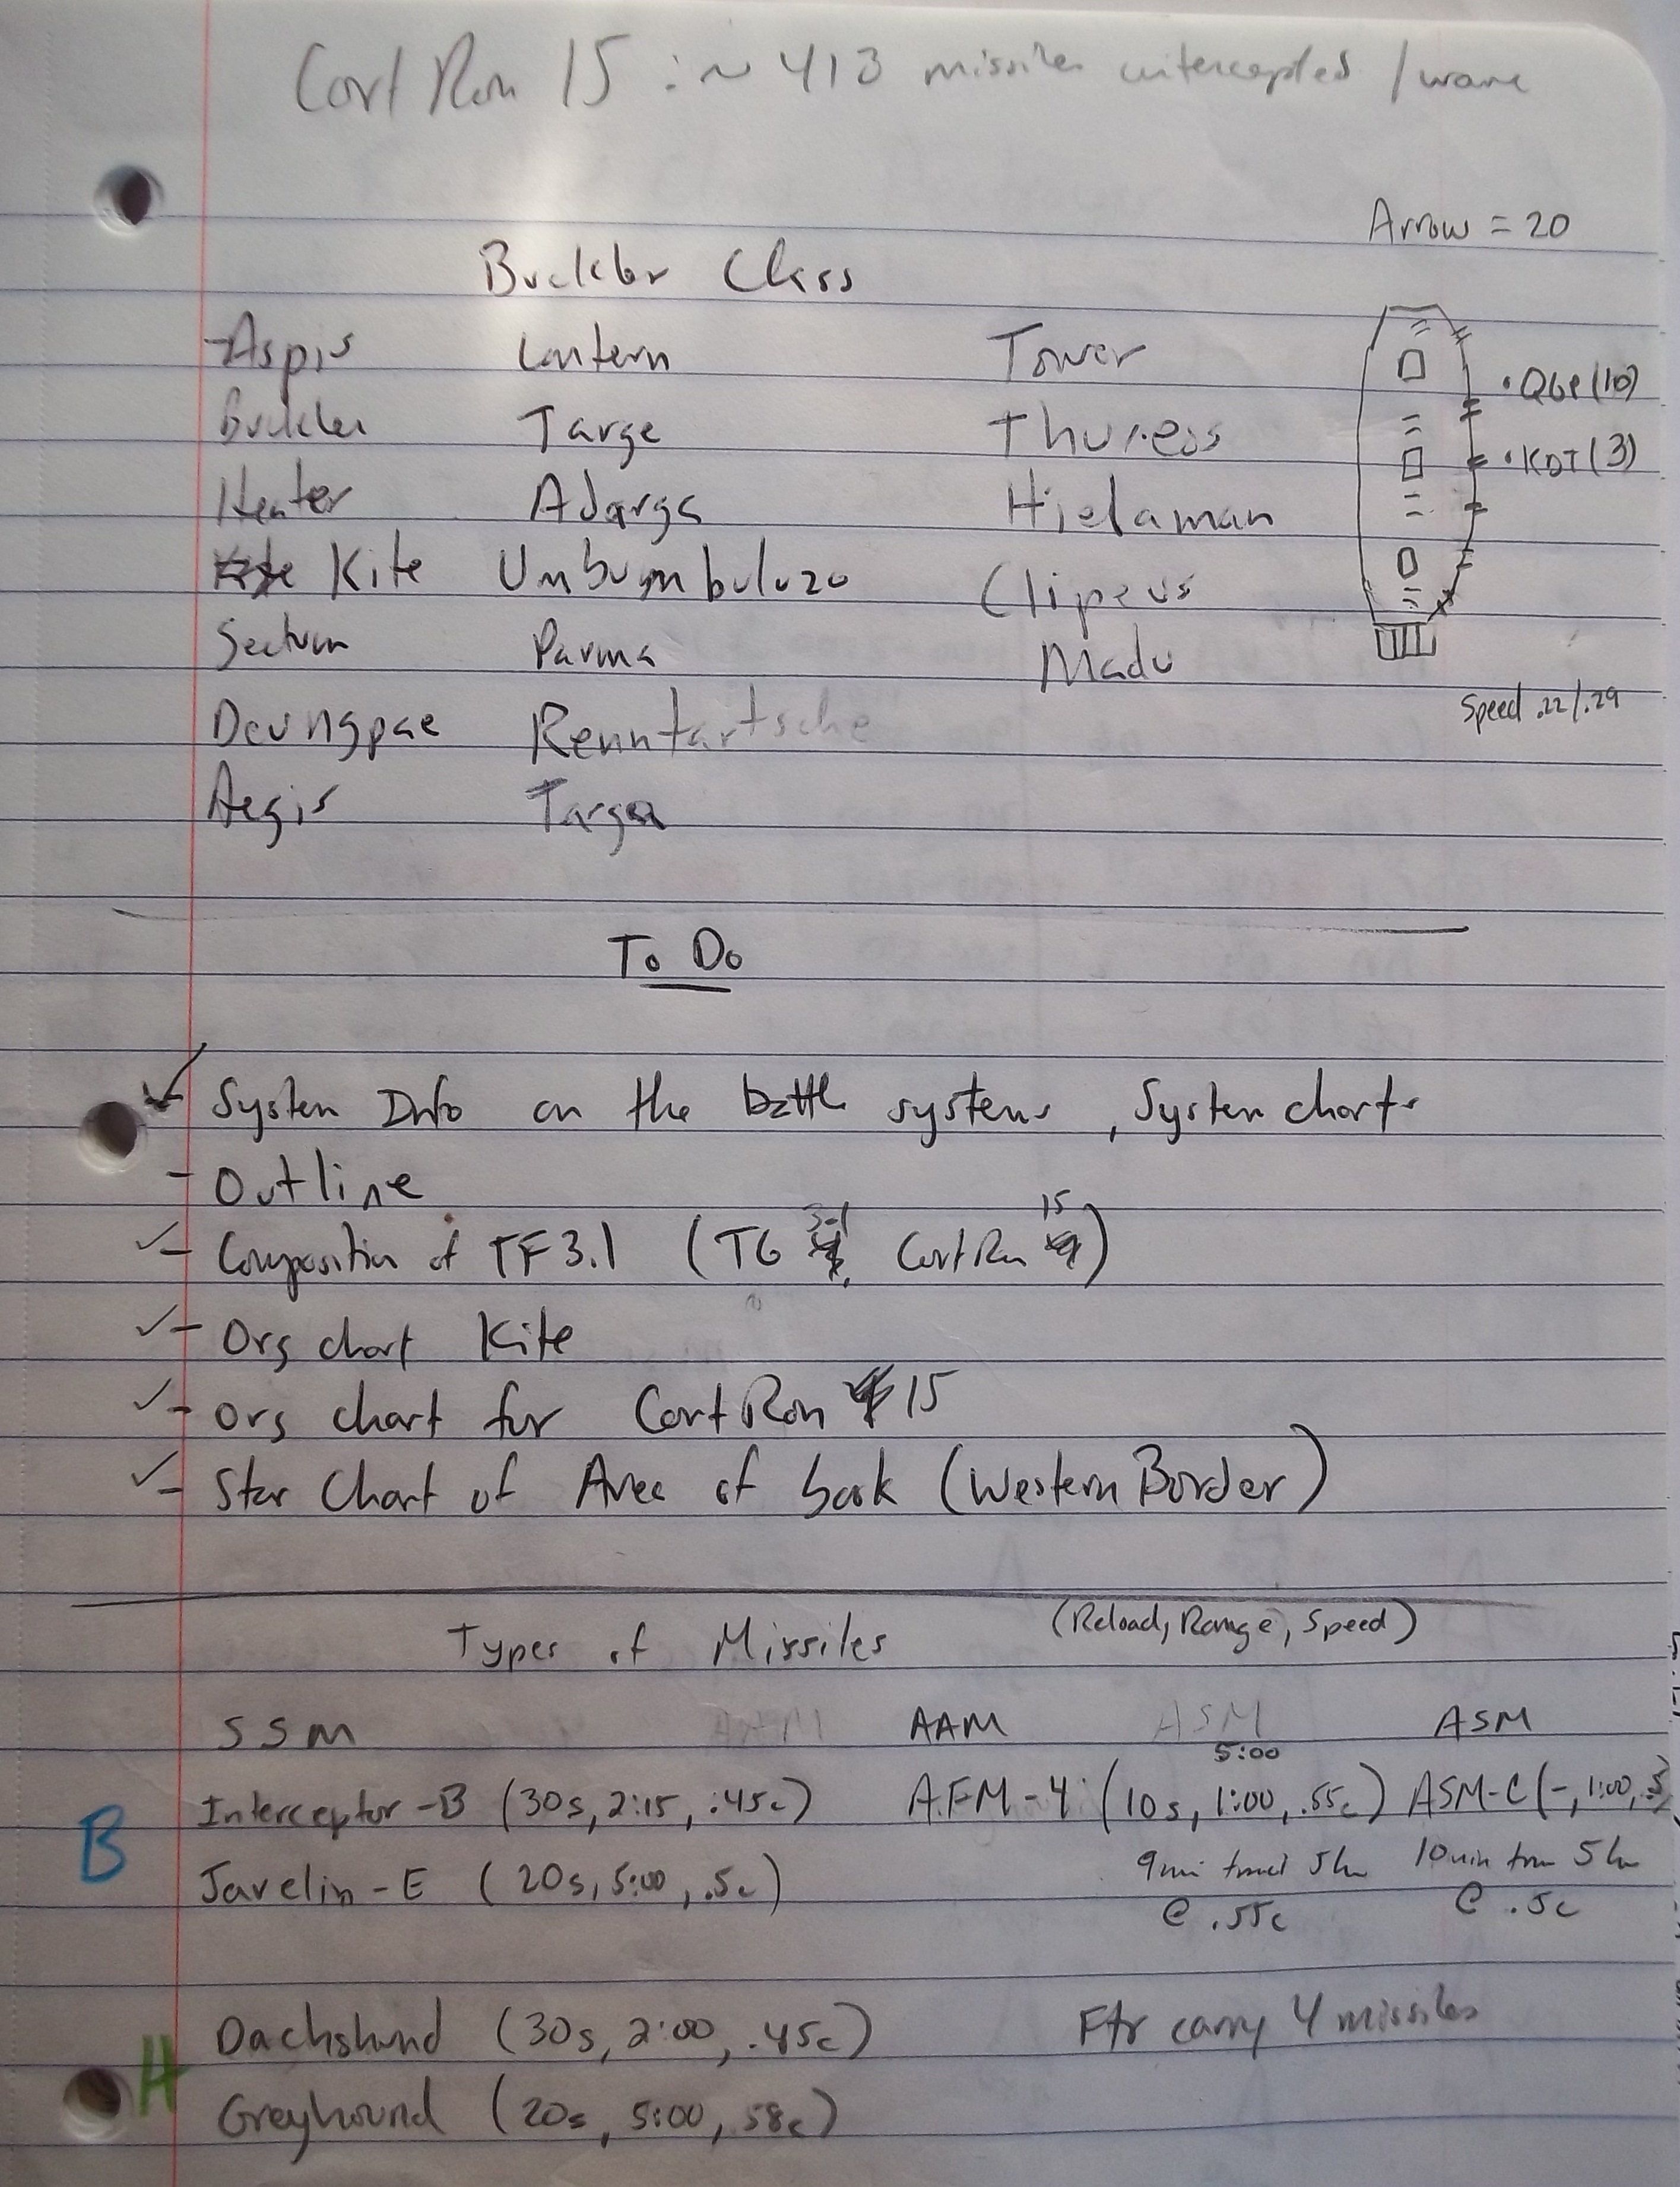 CortRon 15 : ~ 413 missiles intercepted / wave
Arrow = 20
Buckler Class
Aspis Lantern Tower
Buckler Targe Thureos
Heater Adarga Hielaman
Kite Umbumbuluzo Clipeus
Scutum Parma Madu
Deungpae Renntartsche
Aegis Targa
• QGP (10)
• KDT (3)
Speed .22/.29
To Do
✓ System Info on the battle systems, System charts
- Outline
✓- Composition of TF 3.1 (TG 3-1, CortRon 15)
✓- Org chart Kite
✓- Org chart for CortRon 15
✓- Star Chart of Area of book (Western Border)
Types of Missiles (Reload, Range, Speed)
SSM AAM ASM ASM
5:00
B
Interceptor-B (30s, 2:15, .45c) AFM-4 (10s, 1:00, .55c) ASM-C (-, 1:00, .5
Javelin-E (20s, 5:00, .5c) 9min travel 5lm 10min from 5lm
@ .55c @ .5c
H
Dachshund (30s, 2:00, .45c) Ftr carry 4 missiles
Greyhound (20s, 5:00, 58c)